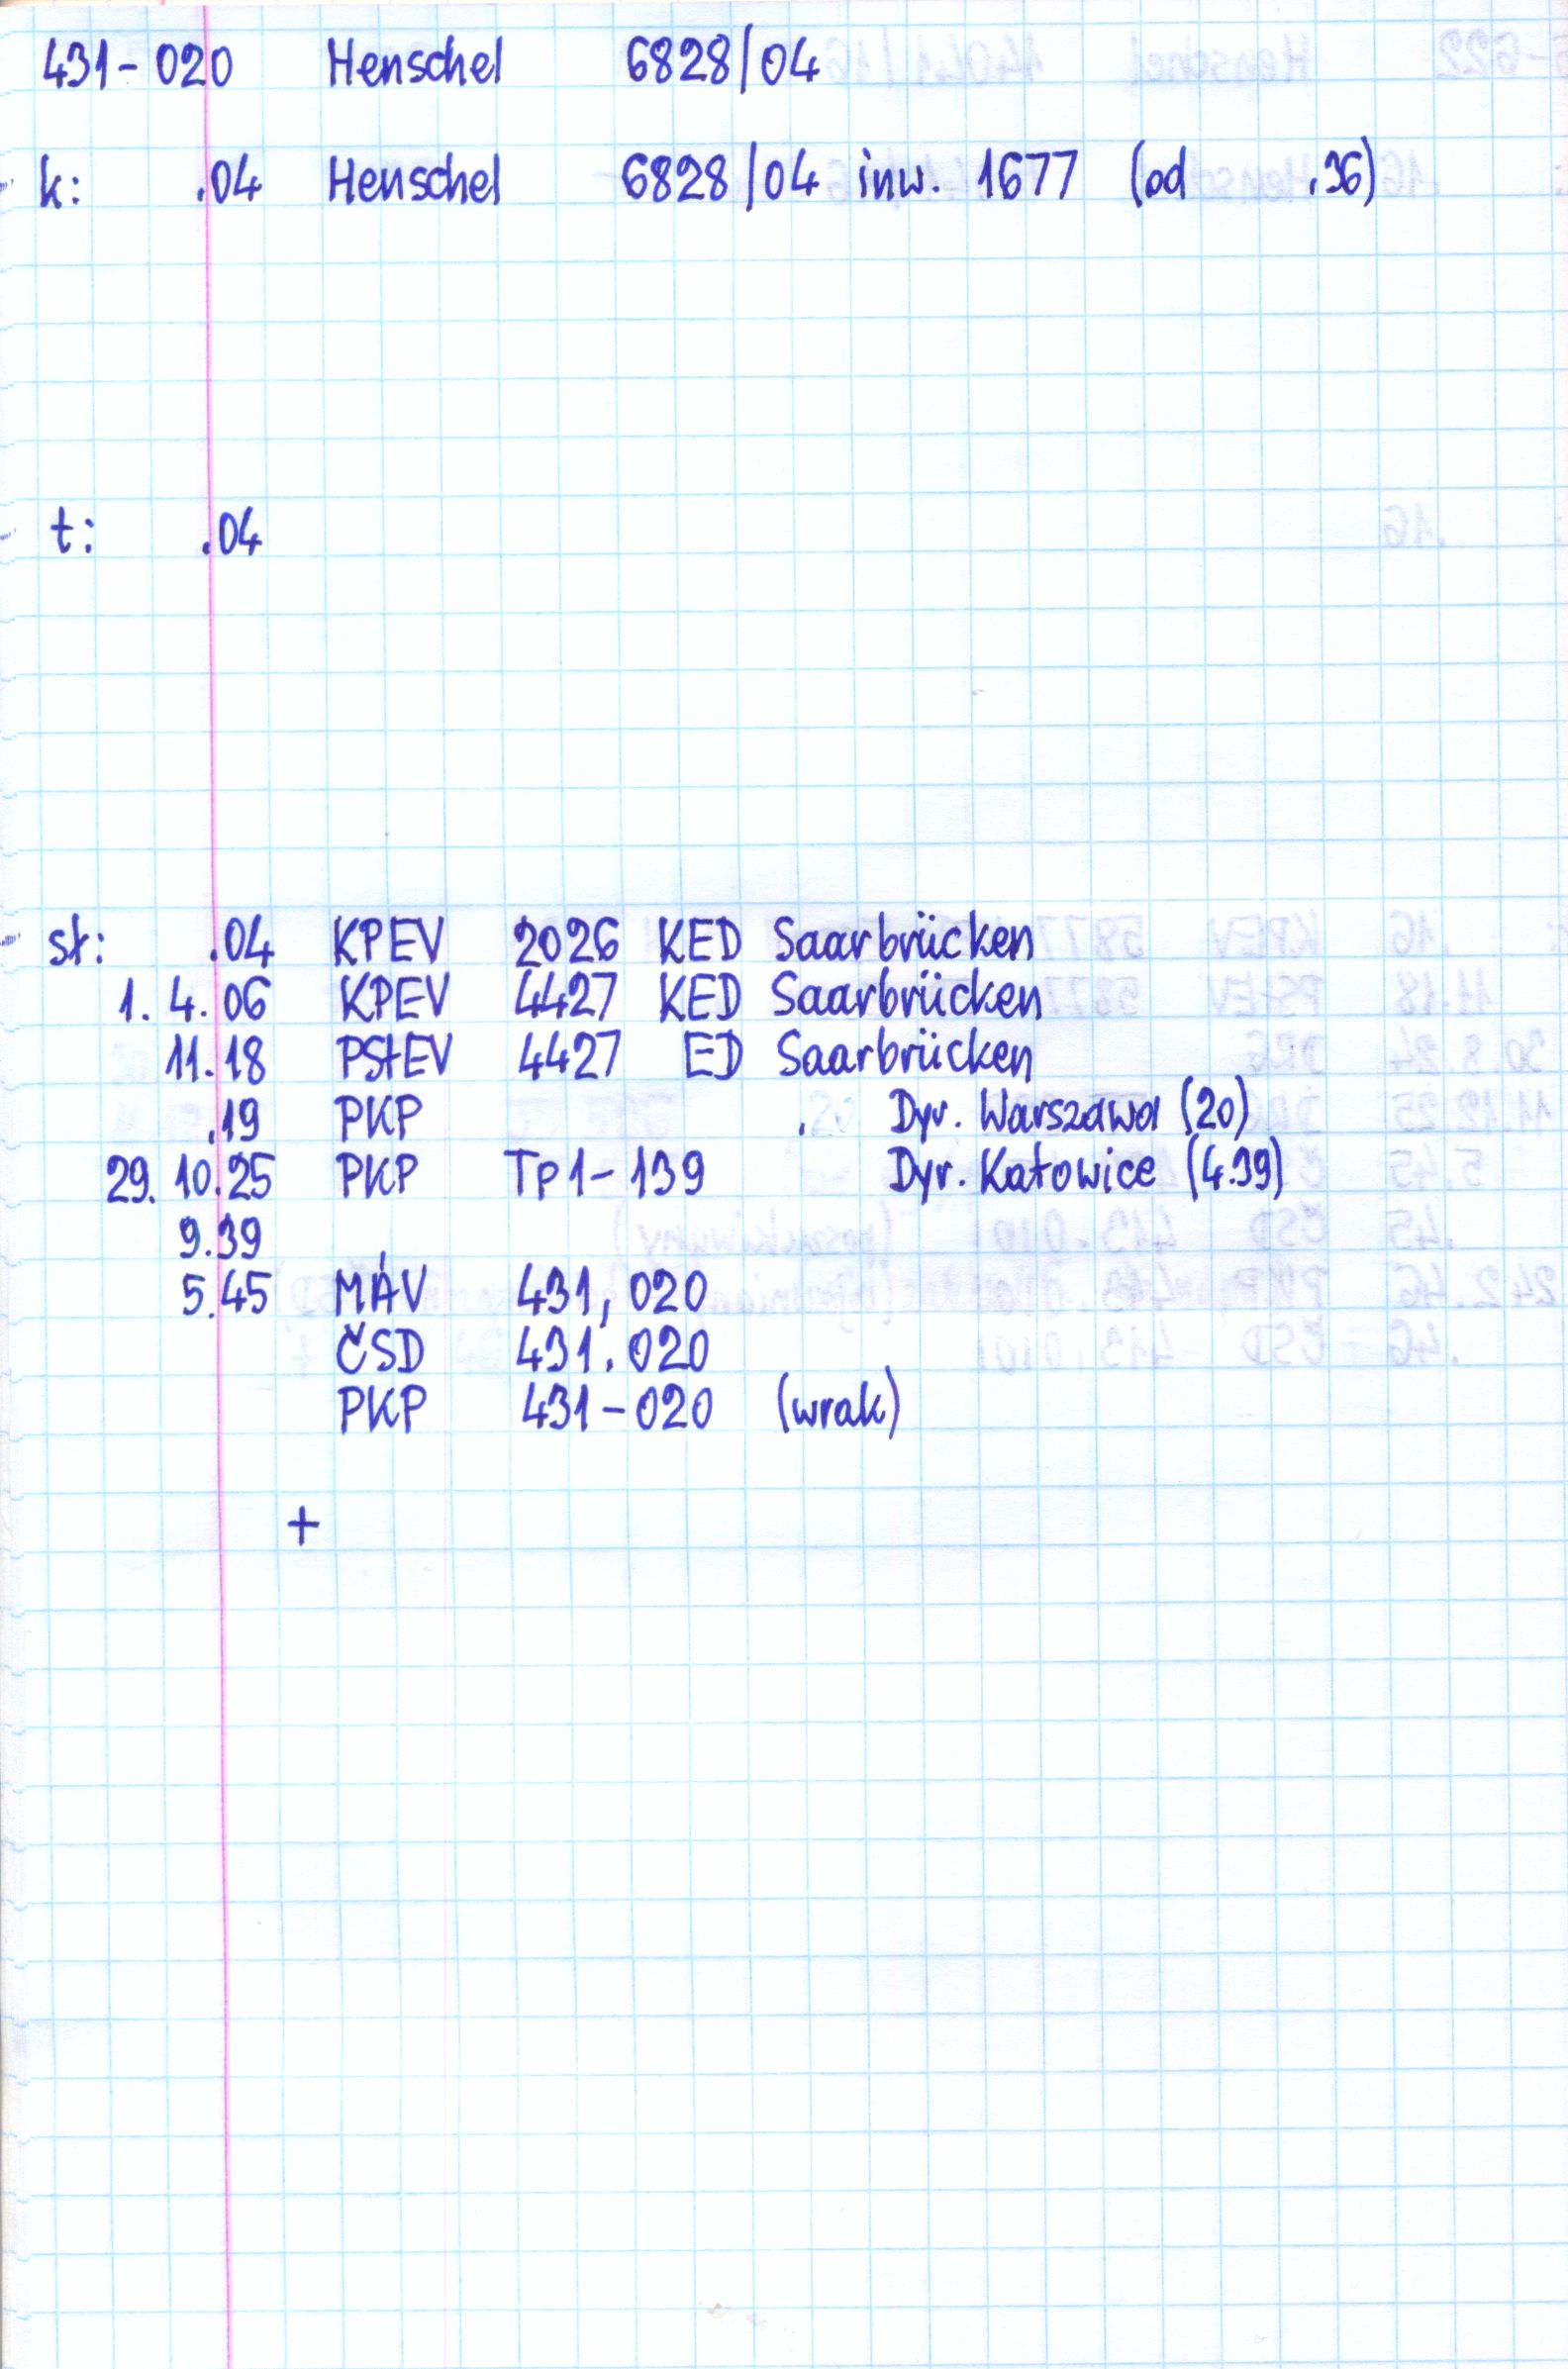 431-020 Henschel 6828/04
k: .04 Henschel 6828/04 inw. 1677 (od .36)
t: .04
st: .04 KPEV 2026 KED Saarbrücken
1. 4. 06 KPEV 4427 KED Saarbrücken
11.18 PStEV 4427 ED Saarbrücken
.19 PKP . Dyr. Warszawa (20)
29. 10.25 PKP Tp1-139 Dyr. Katowice (4.39)
9.39
5.45 MÁV 431,020
ČSD 431.020
PKP 431-020 (wrak)
+